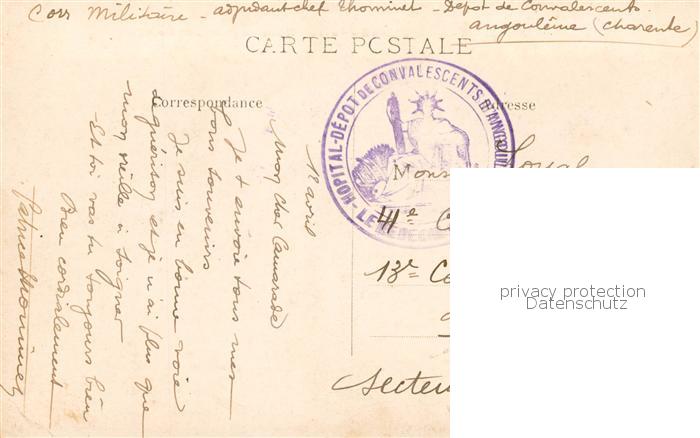 Corr Militaire - adjudant chef Thominet - Depot de Convalescents.
Angoulême (Charente)
CARTE POSTALE
Correspondance
Adresse
HOPITAL-DÉPÔT DE CONVALESCENTS D'ANGOU
LE MEDECIN
18 avril
Mon Cher Camarade
Je t envoie tous mes
bons souvenirs
Je suis en bonne voie
de guérison et je n'ai plus que
mon oreille à soigner
Et toi vas tu toujours bien
Bien cordialement
Thominet
Mons
41e C
13e Co
Secteu
privacy protection
Datenschutz